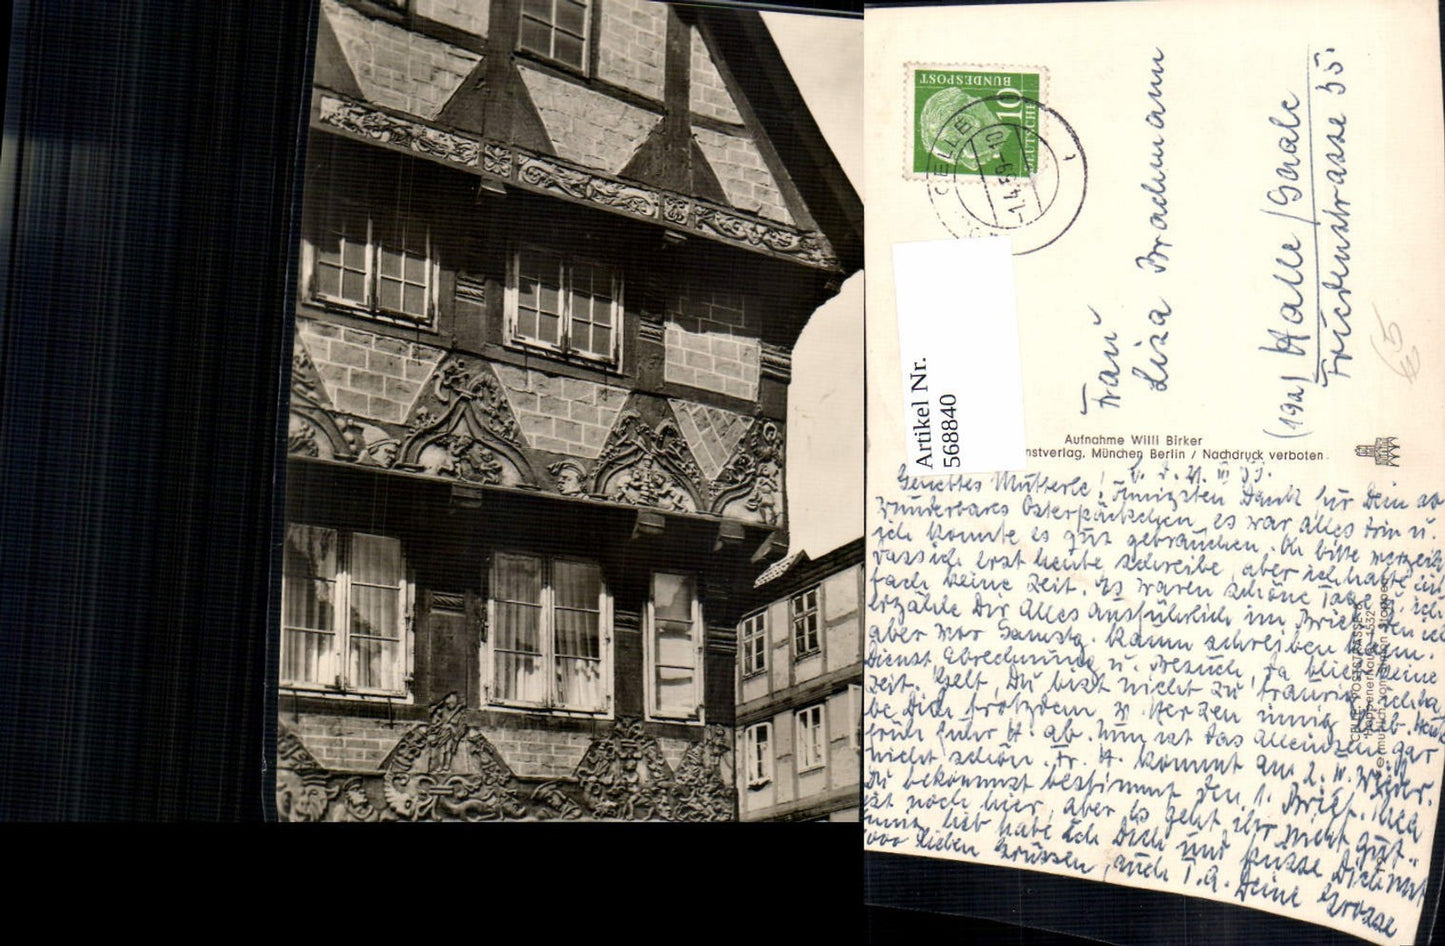 DEUTSCHE
BUNDESPOST
10
CELLE
-1.4.59-10
Artikel Nr.
568840
Frau
Lisa Brachmann
(19a) Halle / Saale
Friedenstrasse 35
Aufnahme Willi Birker
nstverlag, München Berlin / Nachdruck verboten
Geliebtes Mutterle! 31. III 59.
Innigsten Dank für Dein so
wunderbares Osterpäckchen, es war alles drin u.
ich konnte es gut gebrauchen. bitte verzeih
dass ich erst heute schreibe, aber ich hatte ein-
fach keine Zeit. Es waren schöne Tage u. ich
erzähle Dir alles ausführlich im Brief, den ich
aber vor Samstg. kaum schreiben kann.
Dienst, Abrechnung u. Besuch, da blieb keine
Zeit. Gelt, Du bist nicht zu traurig, ich ha-
be Dich trotzdem v. Herzen innig lieb. Heute
früh fuhr H. ab. Nun ist das Alleinsein gar
nicht schön. Fr. H. kommt am 2. IV. wieder.
Du bekommst bestimmt den 1. Brief.
ist noch hier, aber es geht ihr nicht gut.
lieb habe ich Dich und küsse Dich mit
1000 lieben Grüssen, auch T. G. Deine Grosse